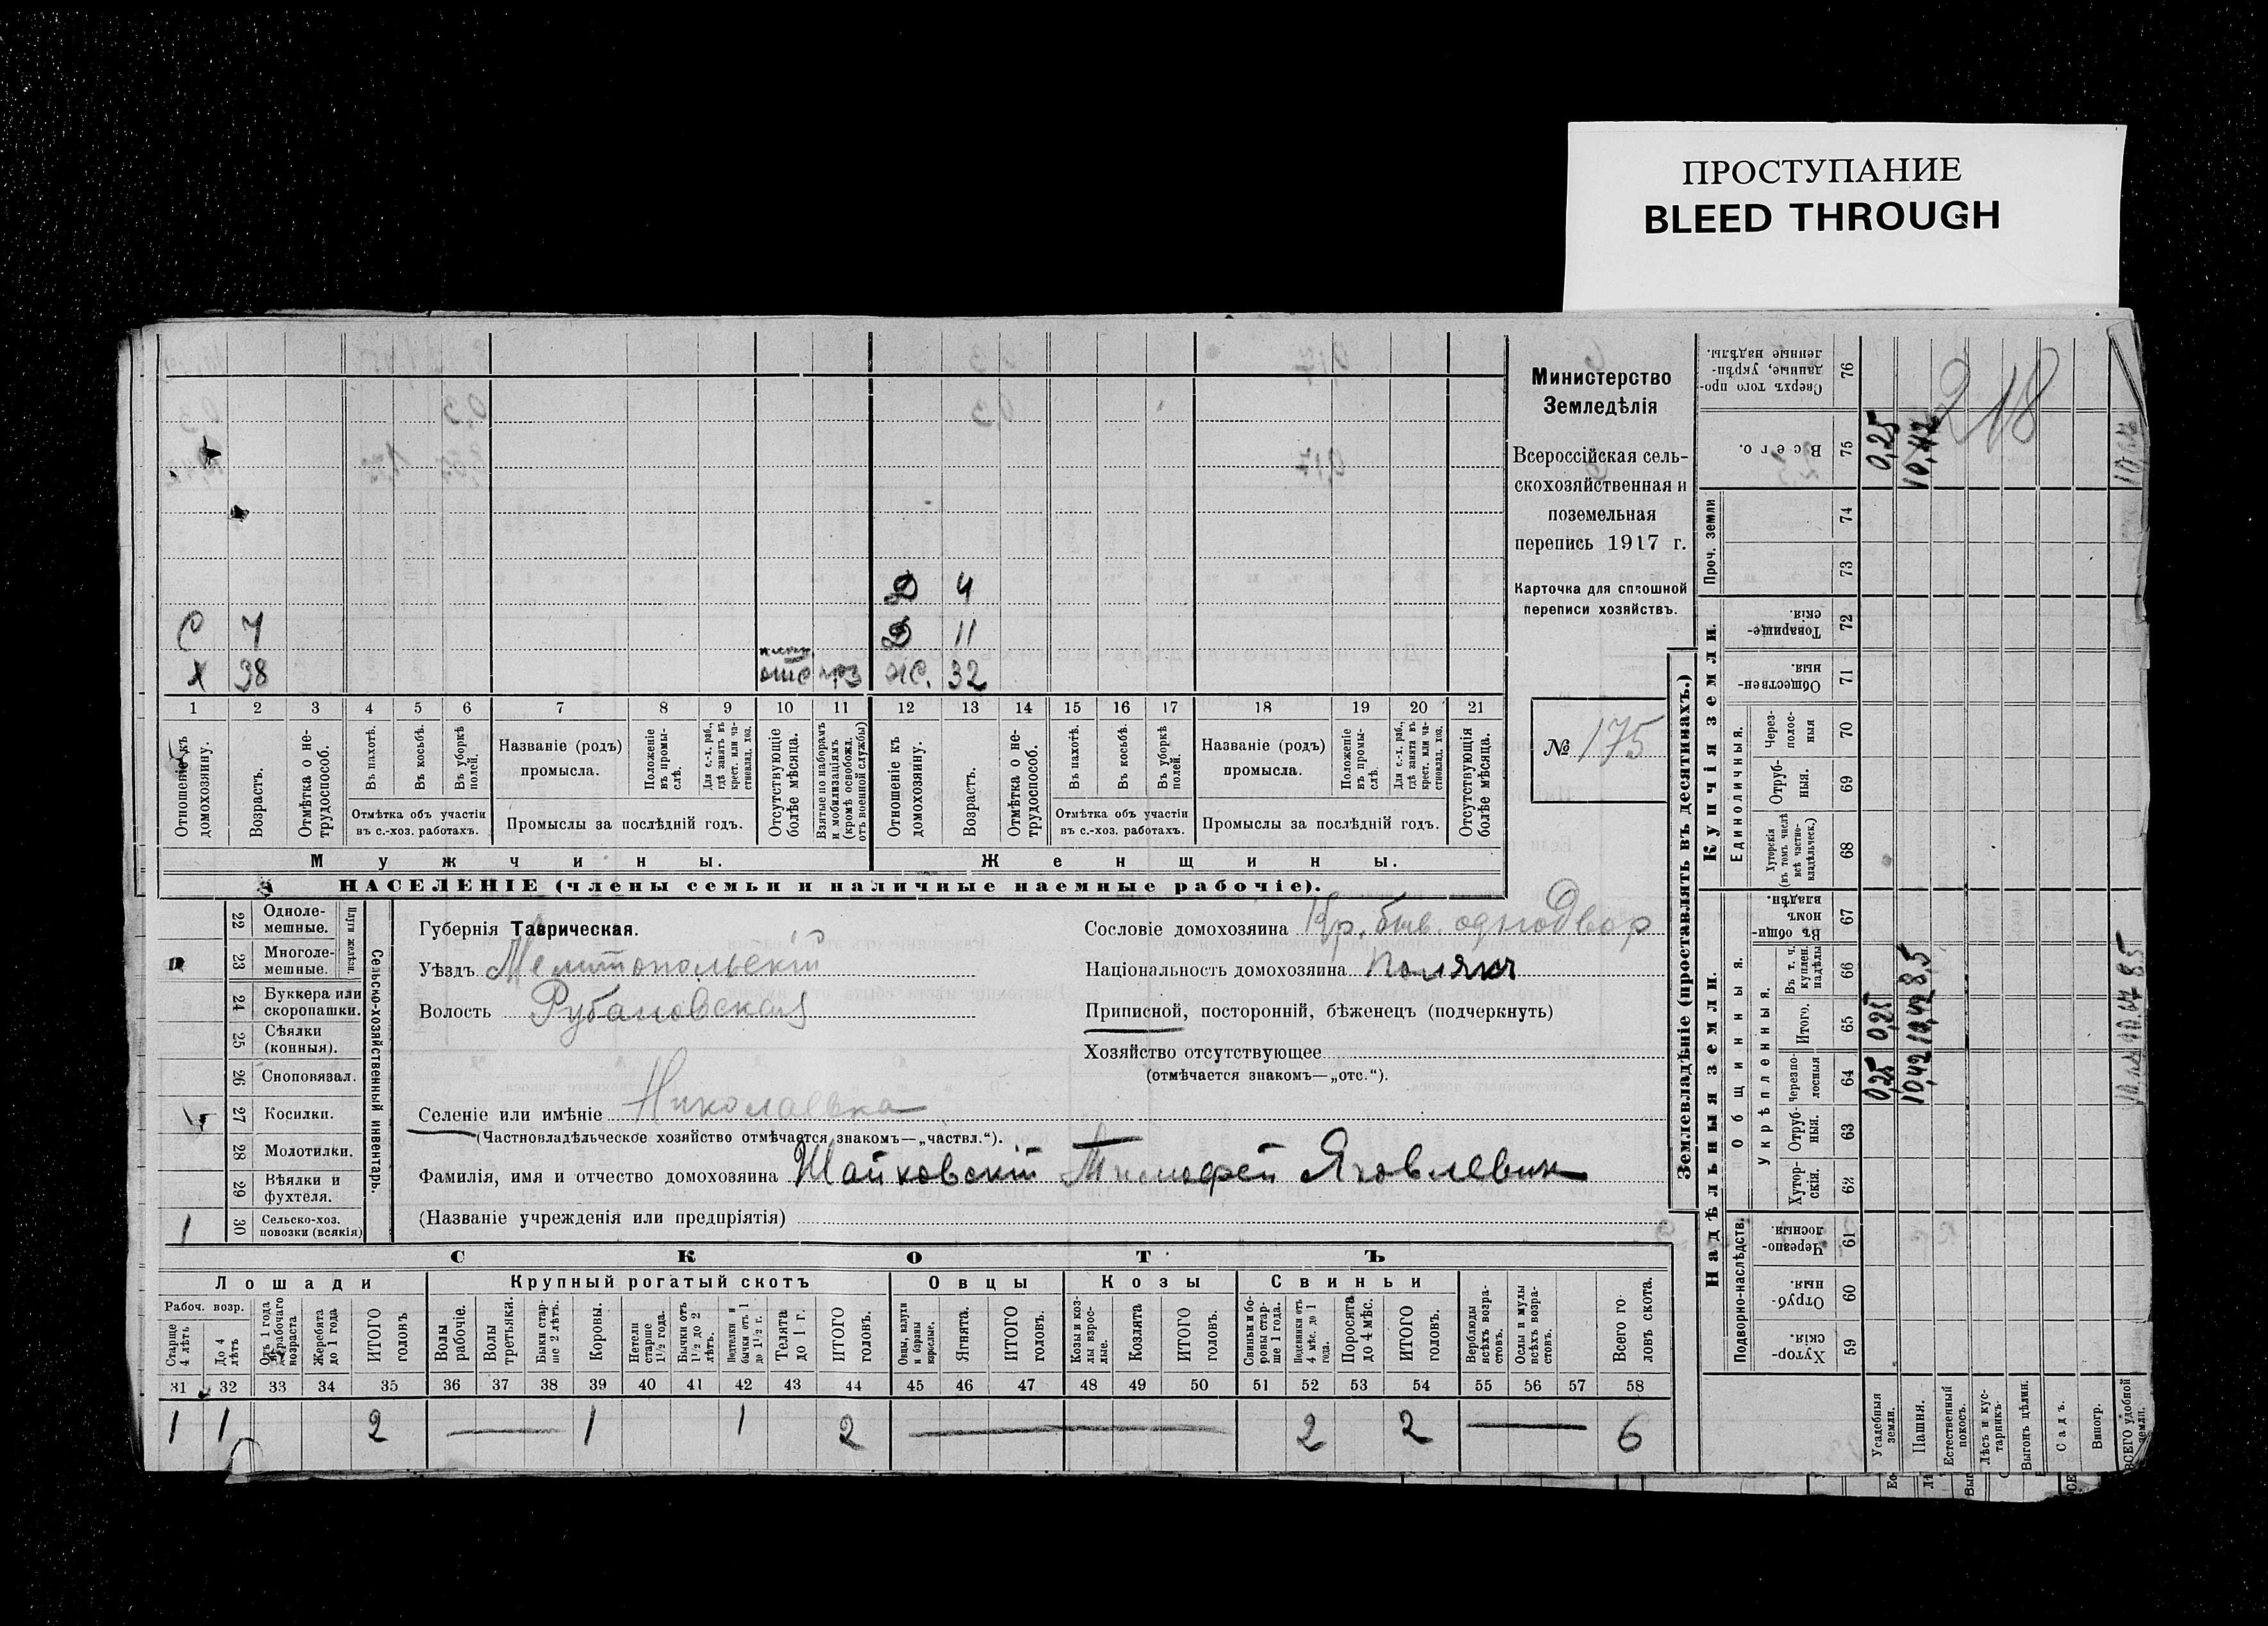 ПРОСТУПАНИЕ
BLEED THROUGH
Министерство
Земледѣлія
Всероссійская сель-
скохозяйственная и
поземельная
перепись 1917 г.
Карточка для сплошной
переписи хозяйствъ.
№ 175
218
Д 4
С 7 Д 11
Х 38 отс Ж. 32
1 2 3 4 5 6 7 8 9 10 11 12 13 14 15 16 17 18 19 20 21
Отношеніе къ домохозяину.
Возрастъ.
Отмѣтка о не-трудоспособ.
Въ пахотѣ.
Въ косьбѣ.
Въ уборкѣ полей.
Отмѣтка объ участіи
въ с.-хоз. работахъ.
Названіе (родъ)
промысла.
Положеніе въ промы-слѣ.
Для с.-х. раб., гдѣ занятъ въ крест. или ча-стновлад. хоз.
Промыслы за послѣдній годъ.
Отсутствующіе болѣе мѣсяца.
Взятые по наборамъ и мобилизаціямъ (кромѣ освобожд. отъ военной службы)
Отношеніе къ домохозяину.
Возрастъ.
Отмѣтка о не-трудоспособ.
Въ пахотѣ.
Въ косьбѣ.
Въ уборкѣ полей.
Отмѣтка объ участіи
въ с.-хоз. работахъ.
Названіе (родъ)
промысла.
Положеніе въ промы-слѣ.
Для с.-х. раб., гдѣ занята въ крест. или ча-стновлад. хоз.
Промыслы за послѣдній годъ.
Отсутствующія болѣе мѣсяца.
Мужчины. Женщины.
НАСЕЛЕНІЕ (члены семьи и наличные наемные рабочіе).
22 Одноле-мешные.
23 Многоле-мешные.
Плуги желѣзн.
24 Буккера или скоропашки.
25 Сѣялки (конныя).
26 Сноповязал.
27 Косилки.
28 Молотилки.
29 Вѣялки и фухтеля.
1 30 Сельско-хоз. повозки (всякія)
Сельско-хозяйственный инвентарь.
Губернія Таврическая.
Уѣздъ Мелитопольскій
Волость Рубановская
Селеніе или имѣніе Николаевка
(Частновладѣльческое хозяйство отмѣчается знакомъ—„частвл.“).
Фамилія, имя и отчество домохозяина Шайковскій Тимофей Яковлевич
(Названіе учрежденія или предпріятія)
Сословіе домохозяина Кр. быв. однодвор
Національность домохозяина Полякъ
Приписной, посторонній, бѣженецъ (подчеркнуть)
Хозяйство отсутствующее
(отмѣчается знакомъ—„отс.“).
СКОТЪ
Лошади Крупный рогатый скотъ Овцы Козы Свиньи
Рабоч. возр.
Старше 4 лѣтъ
До 4 лѣтъ
Отъ 1 года до рабочаго возраста
Жеребята до 1 года
ИТОГО головъ
Волы рабочіе.
Волы третьяки.
Быки стар-ше 2 лѣтъ.
Коровы.
Нетели старше 1½ года.
Бычки отъ 1½ до 2 лѣтъ.
Подтелки и бычки отъ 1 до 1½ г.
Телята до 1 г.
ИТОГО головъ.
Овцы, валухи и бараны взрослые.
Ягнята.
ИТОГО головъ.
Козы и коз-лы взрос-лые.
Козлята
ИТОГО головъ.
Свиньи и бо-ровы стар-ше 1 года.
Подсвинки отъ 4 мѣс. до 1 года.
Поросята до 4 мѣс.
ИТОГО головъ.
Верблюды всѣхъ возра-стовъ.
Ослы и мулы всѣхъ возра-стовъ.
Всего го-ловъ скота.
31 32 33 34 35 36 37 38 39 40 41 42 43 44 45 46 47 48 49 50 51 52 53 54 55 56 57 58
1 1 2 1 1 2 2 2 6
Землевладѣніе (проставлять въ десятинахъ.)
Надѣльныя земли. Купчія земли. Проч. земли
Подворно-наслѣдств. Общинныя. Единоличныя.
Укрѣпленныя.
Хутор-скія. 59
Отруб-ныя. 60
Черезпо-лосныя 61
Хутор-скія. 62
Отруб-ныя. 63
Черезпо-лосныя 64
Итого. 65
Въ т. ч. куплен. надѣлы 66
Въ общин-номъ владѣн. 67
Хуторскія (въ томъ числѣ всѣ частно-владѣльческ.) 68
Отруб-ныя. 69
Через-полос-ныя 70
Обществен-ныя. 71
Товарище-скія. 72
73
74
Всего. 75
Сверхъ того про-данные, укрѣп-ленные надѣлы. 76
Усадебныя земли. 0,25 0,25 0,25
Пашня. 10,42 10,42 8,5 10,42
Естественный покосъ.
Лѣсъ и кус-тарникъ.
Выгонъ цѣлин.
Садъ.
Виногр.
ВСЕГО удобной земли.